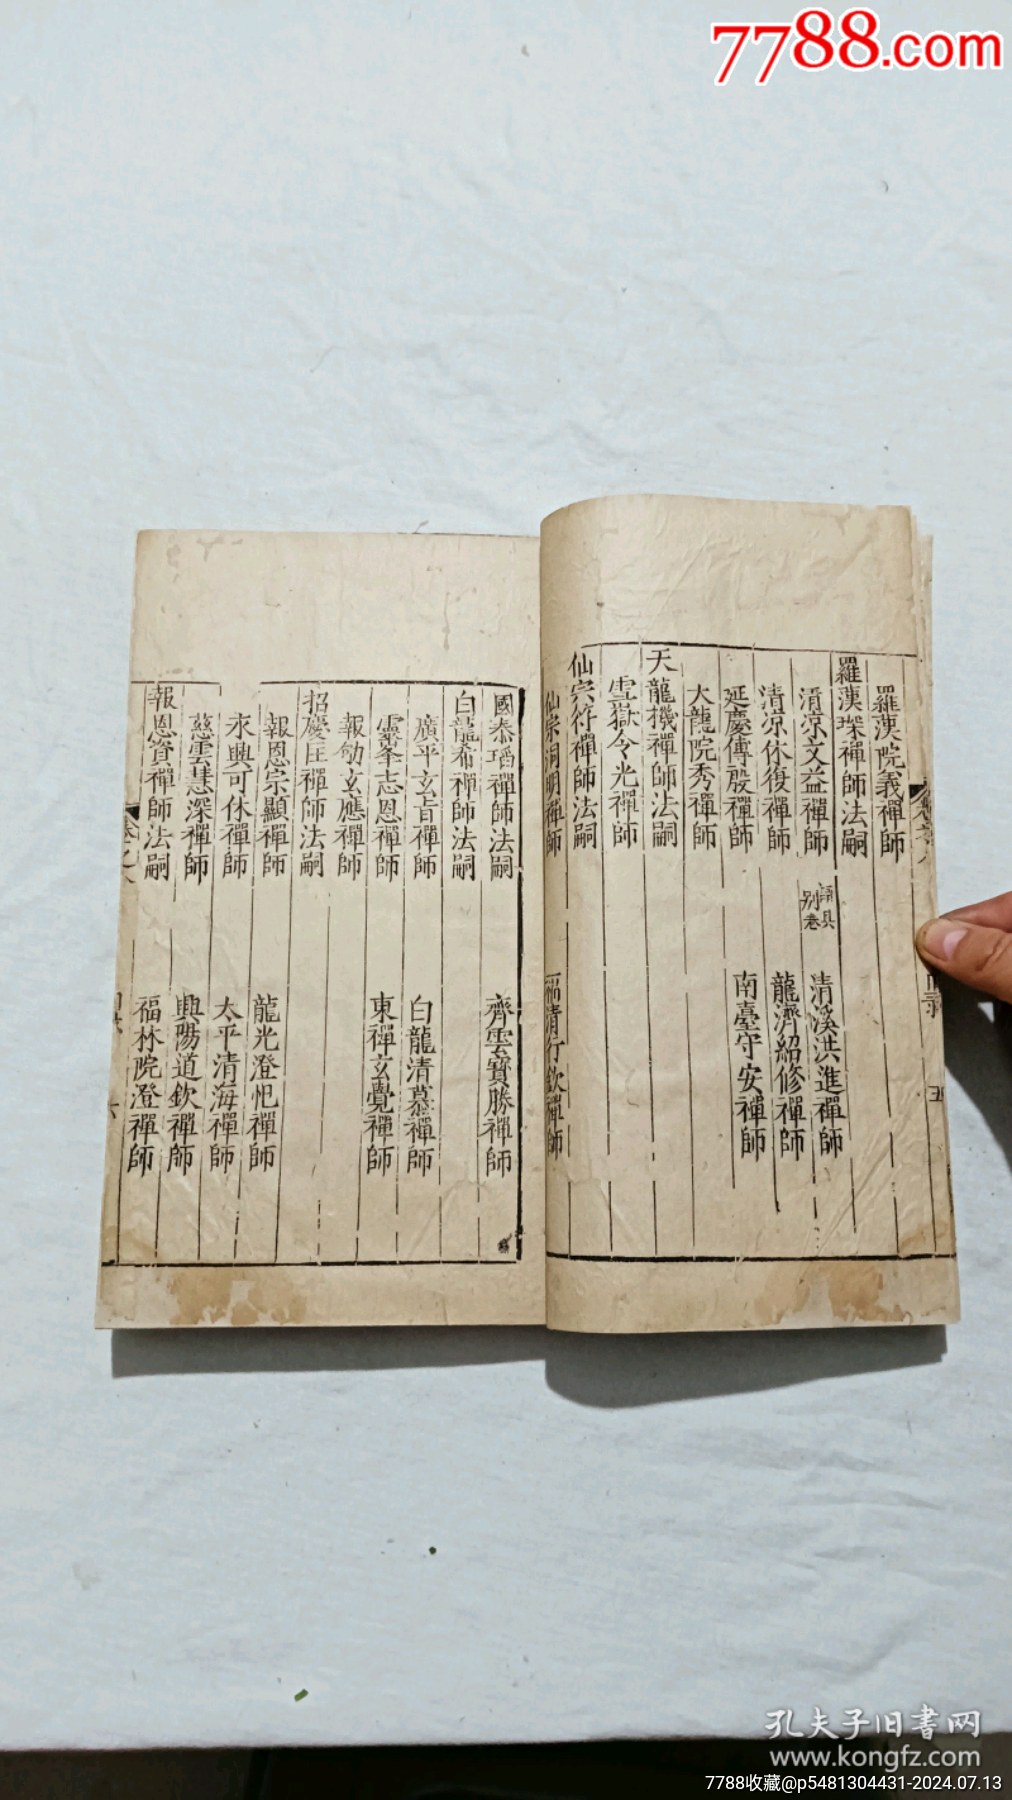 7788.com
羅漢院義禪師
羅漢琛禪師法嗣
清涼文益禪師 語具別卷 清溪洪進禪師
清涼休復禪師 龍濟紹修禪師
延慶傳殷禪師 南臺守安禪師
大龍院秀禪師
天龍機禪師法嗣
雪嶽令光禪師
仙宗符禪師法嗣
仙宗洞明禪師 福清行欽禪師
五
國泰瑫禪師法嗣
齊雲寶勝禪師
白龍希禪師法嗣
廣平玄旨禪師 白龍清慕禪師
靈峯志恩禪師 東禪玄覺禪師
報劬玄應禪師
招慶匡禪師法嗣
報恩宗顯禪師 龍光澄忋禪師
永興可休禪師 太平清海禪師
慈雲慧深禪師 興陽道欽禪師
報恩資禪師法嗣
福林院澄禪師
卷之八
六
孔夫子旧書网
www.kongfz.com
7788收藏@p5481304431-2024.07.13